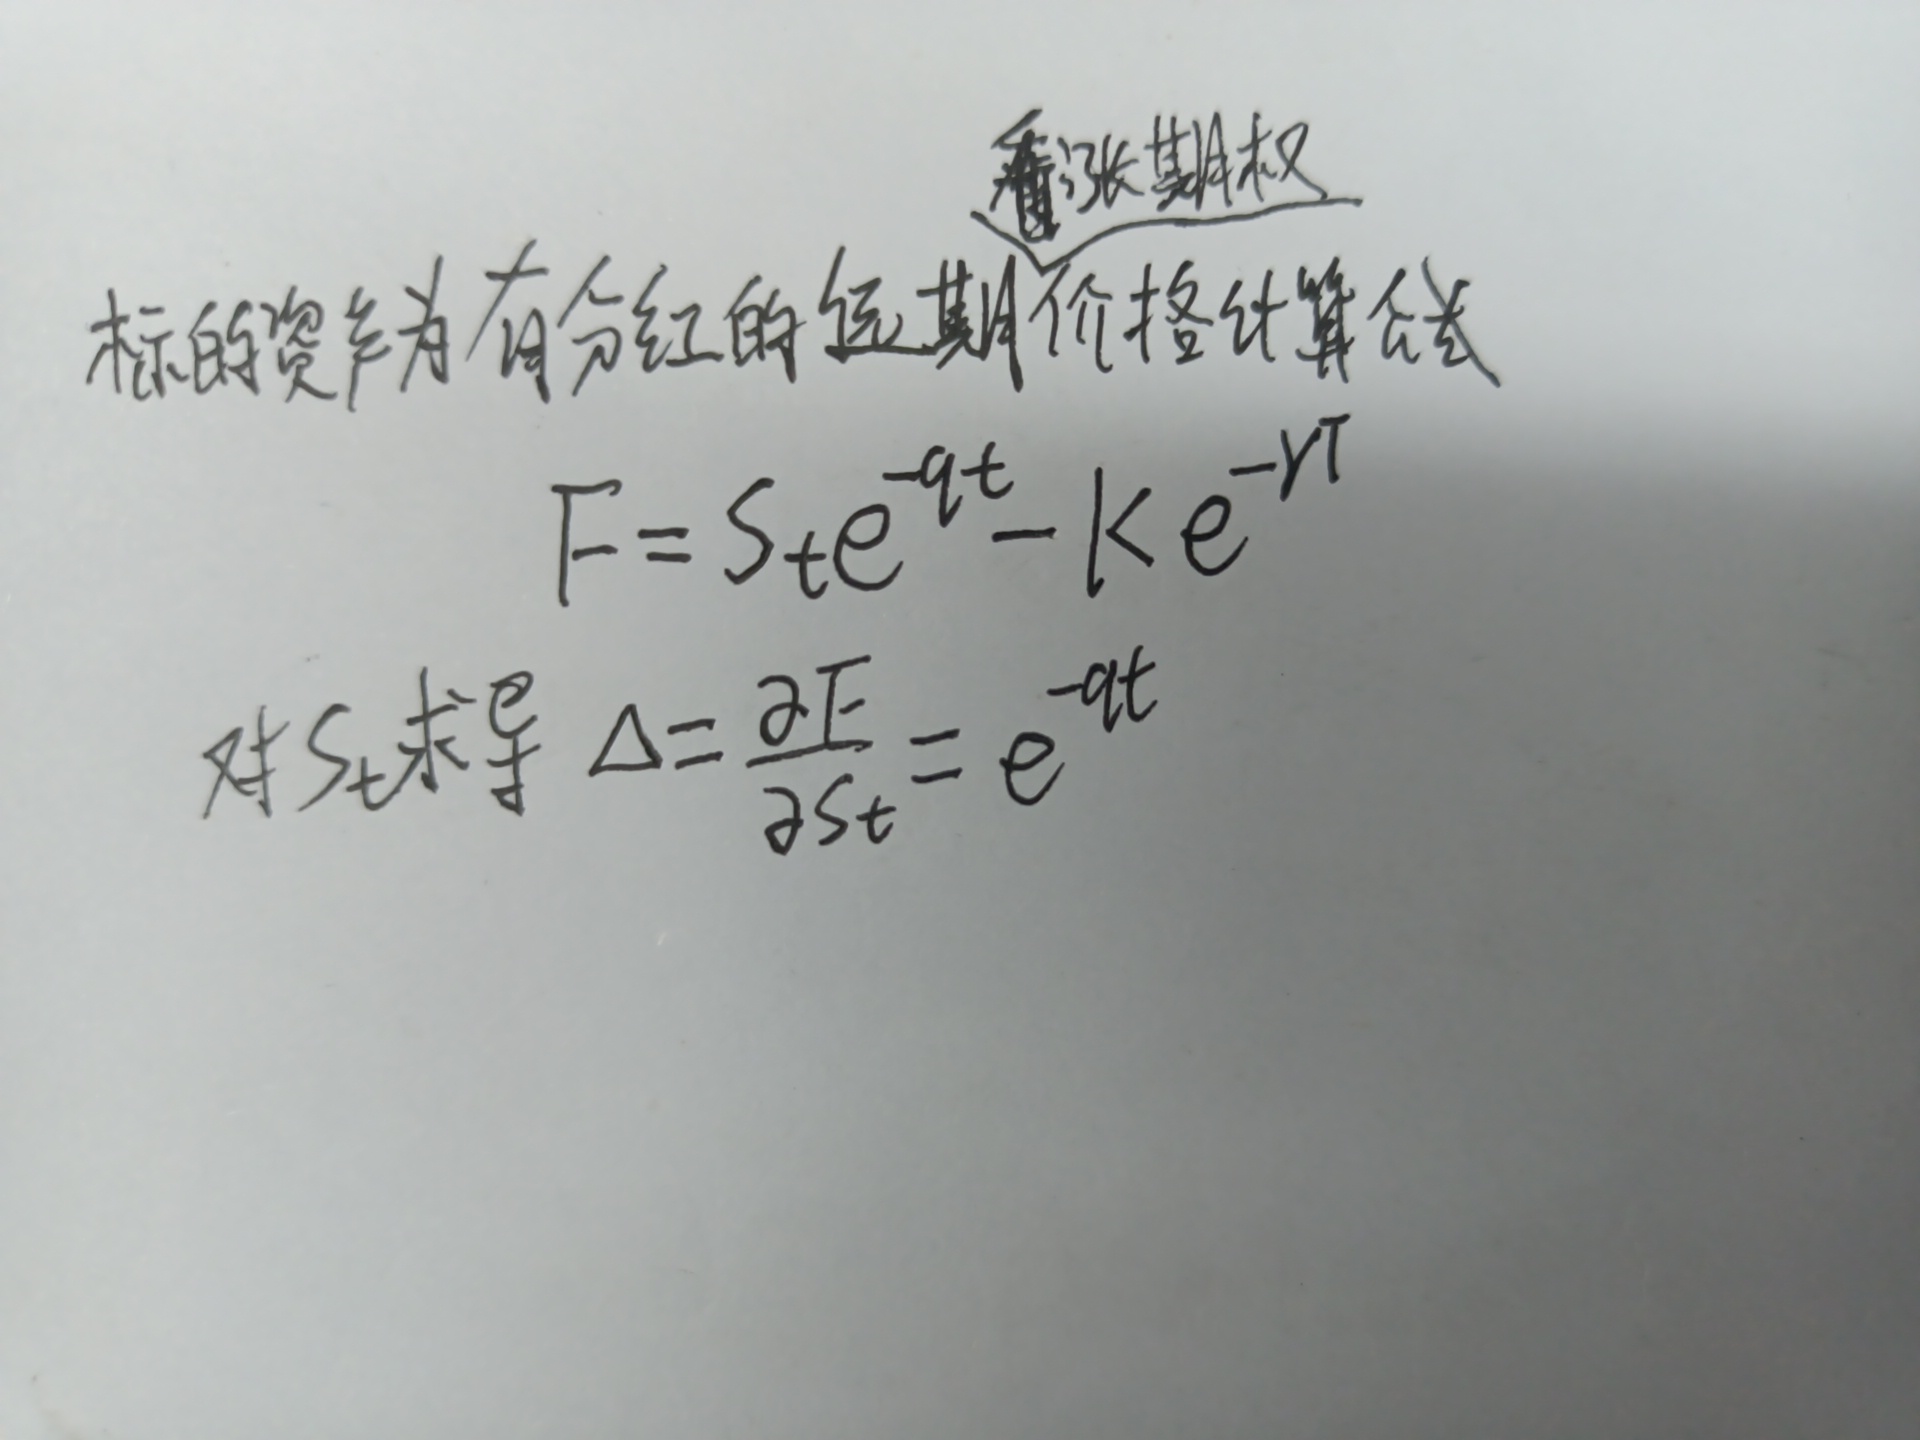 看涨期权
标的资产为有分红的远期价格计算公式
F = Sₜe^{-qt} - Ke^{-rT}
对Sₜ求导 Δ = ∂F/∂Sₜ = e^{-qt}